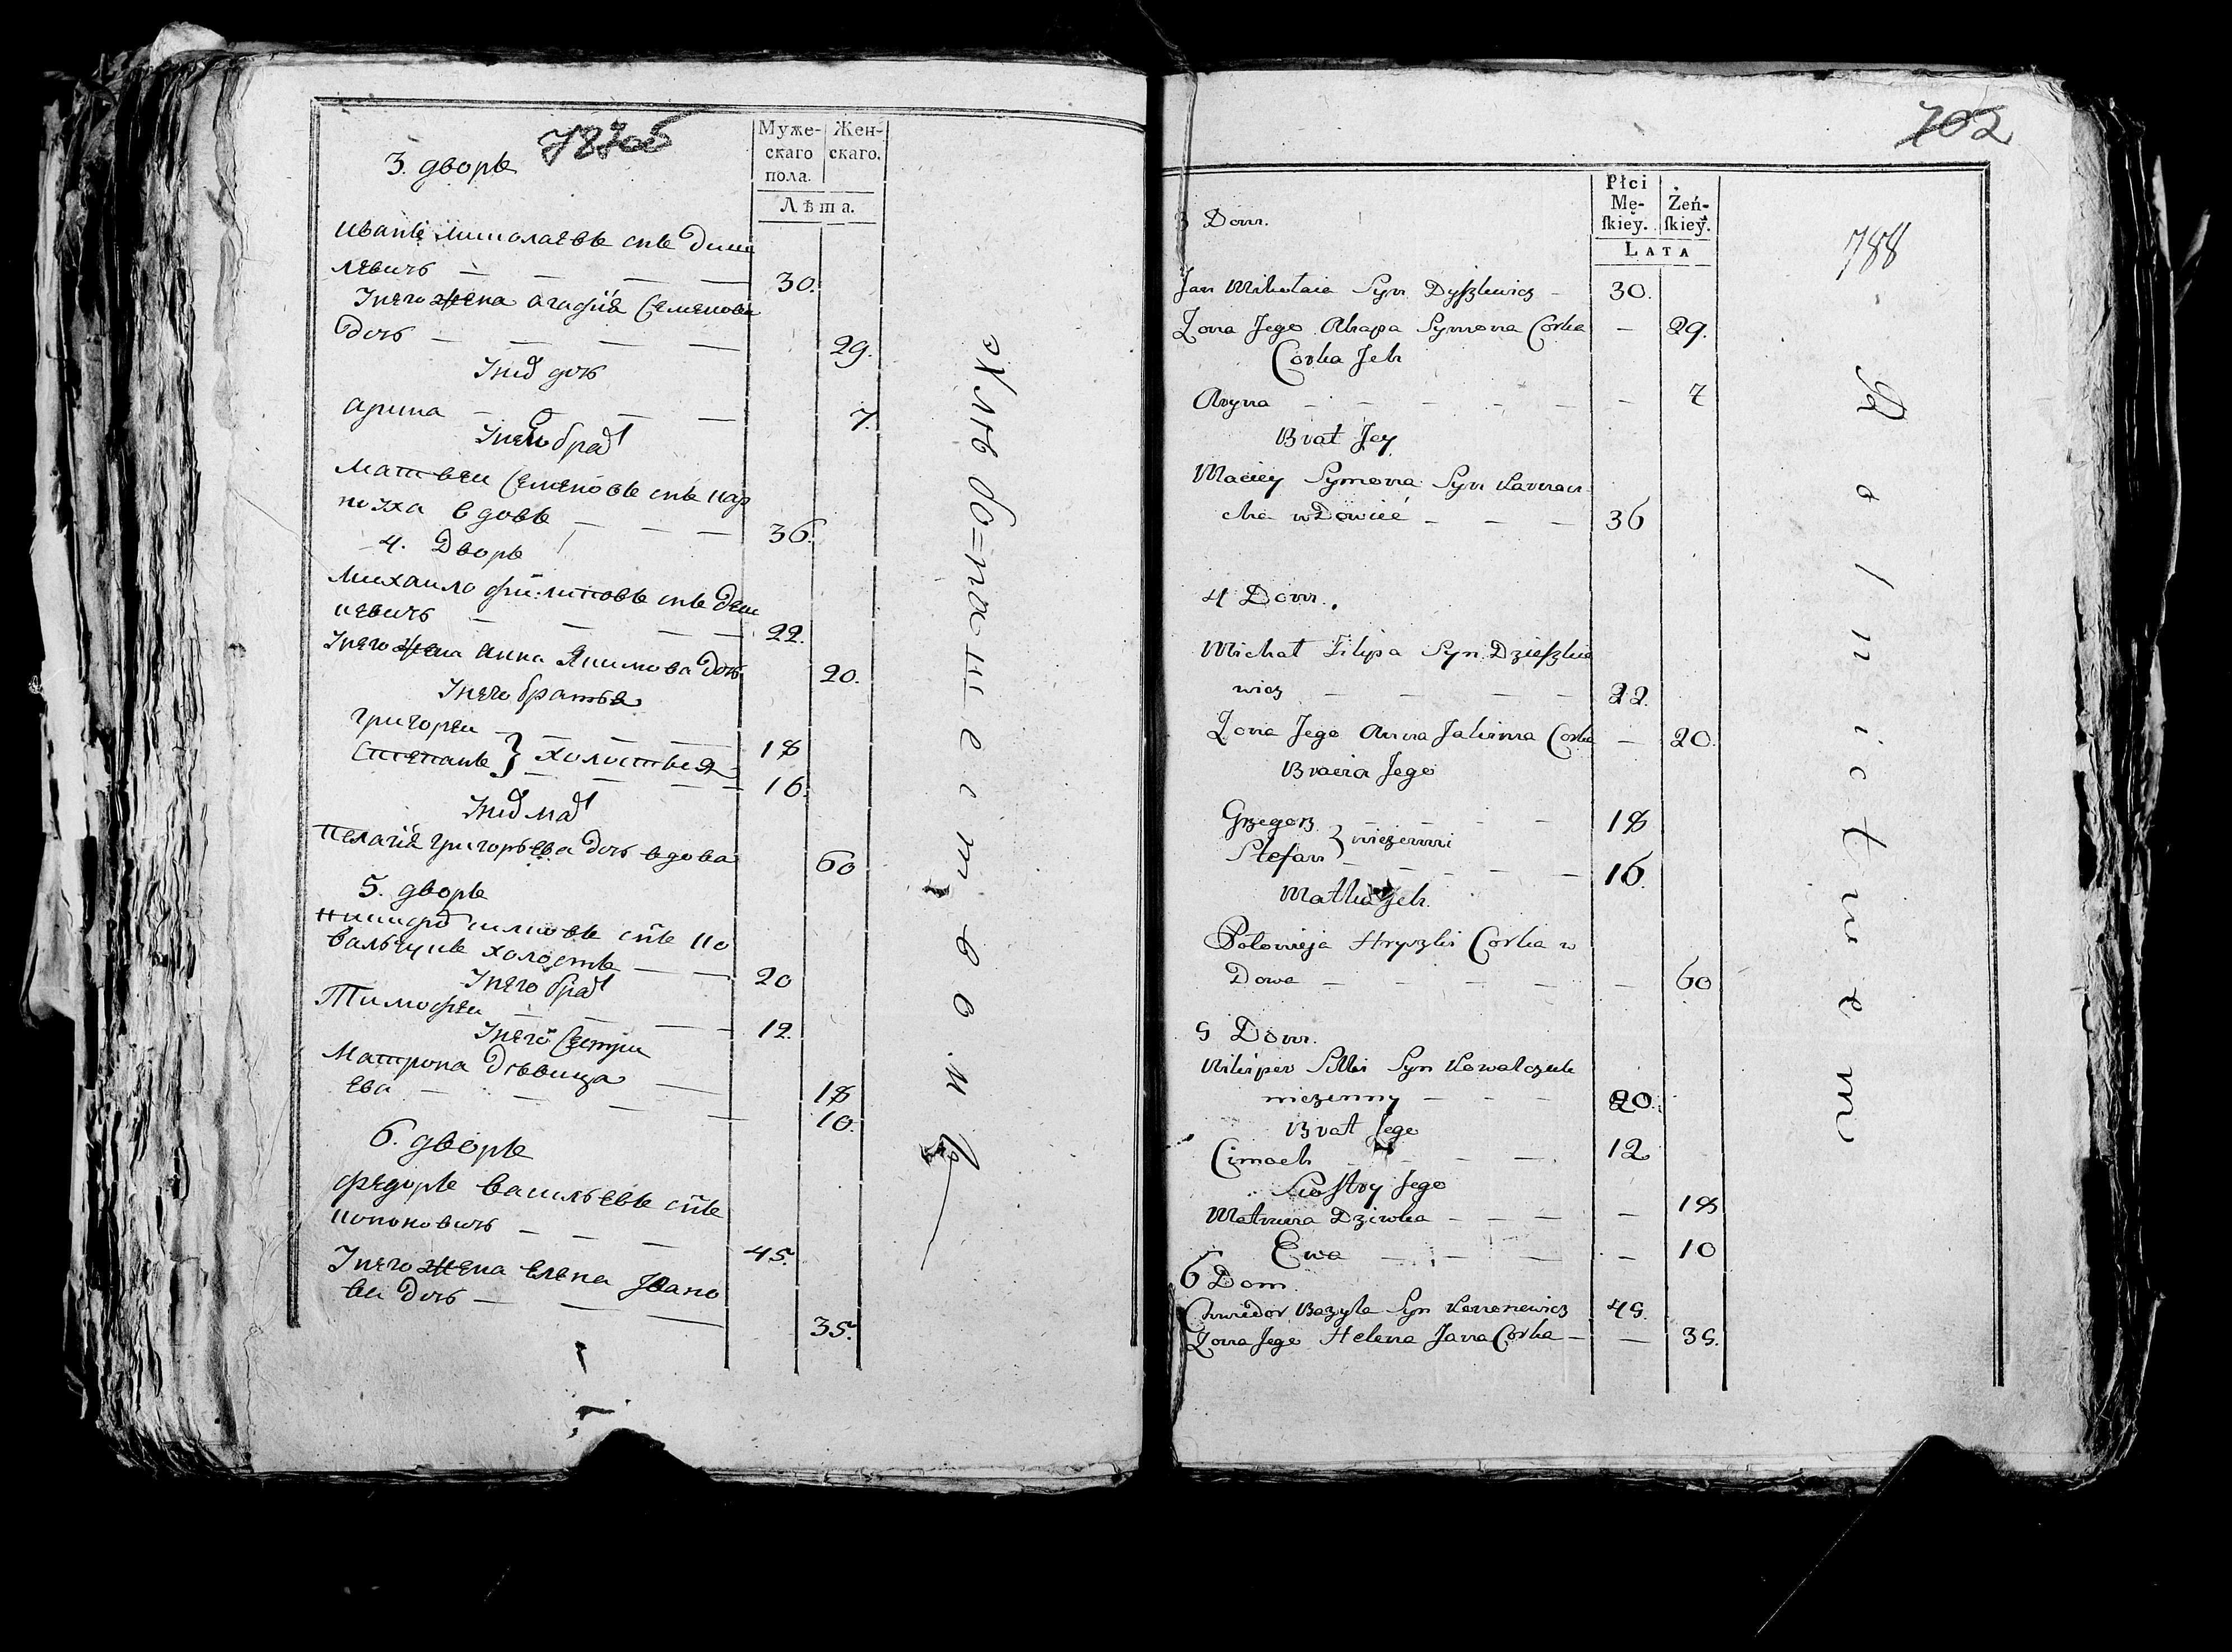 787об
3. дворъ
Муже-
скаго
пола.
Жен-
скаго.
Лѣта.
Иванъ Миколаевъ снъ Диш
левичъ — — — — 30.
У него жена Агафия Семенова
дочь — — — — 29.
У них дочь
Арина — — — — 7.
У нея брат
Матвеи Семеновъ снъ
вдовъ — — — 36.
4. Дворъ
Михаило Филиповъ снъ Деш
кевичъ — — — — 22.
У него жена Анна Якимова дочь 20.
У него братья
Григореи — — — 18
Степанъ } холостыя — — — 16.
У них мат
Пелагия Григорьева дочь вдова 60
5. дворъ
Никифор снъ Ко
вальчукъ холостъ — — 20
У него брат
Тимофеи — — — — 12.
У него сестры
Матрона дѣвица — 18
Ева — — — — — 10.
6. дворъ
Федоръ Васильевъ снъ
Кононовичъ — — — 45.
У него жена Елена Ивано
ва дочь — — — 35.
702
Płci
Mę-
skiey.
Żeń-
skiey.
LATA
788
3 Dom.
Jan Mikołaia Syn Dyszlewicz — 30.
Żona Jego Ahapa Symona Corka — 29.
Corka Jch
Aryna — — — — — — 7
Brat Jey
Maciey Symona Syn
wDowiec — — — 36
4 Dom.
Michał Filipa Syn Dzieszkie
wicz — — — — 22.
Żona Jego Anna Jakima Corka — 20.
Bracia Jego
Grzegorz — — — — 18
Stefan } nieżenni — — — — 16.
Matka Jch.
Połonieja Hryszki Corka w
Dowa — — — — — — 60
5 Dom.
Nikiper Syn Kowalczuk
nieżenny — — — 20.
Brat Jego
Cimoch — — — 12
Siostry Jego
Matruna Dziwka — — — — 18
Ewa — — — — — 10
6 Dom.
Chwiedor Bazyla Syn Kononowicz 45.
Żona Jego Helena Jana Corka — — 35.
R o l n i c t w e m